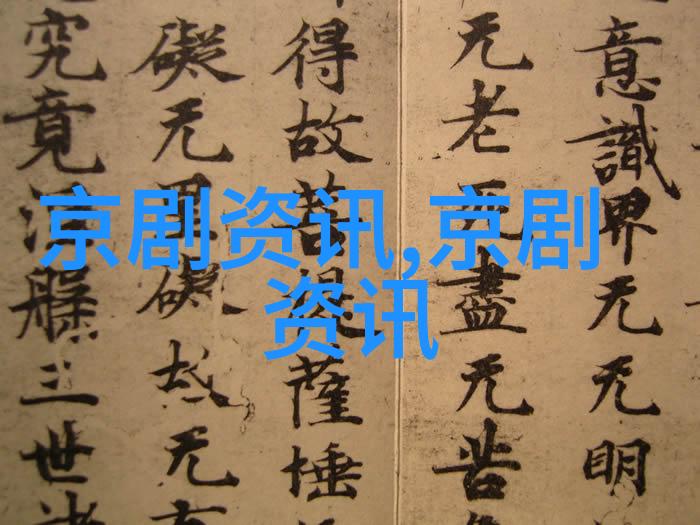 京剧资讯,京剧
资讯
意識界无无明
无老死盡无苦
得故菩提薩埵
礙无罣礙故无有
究竟涅槃三世諸